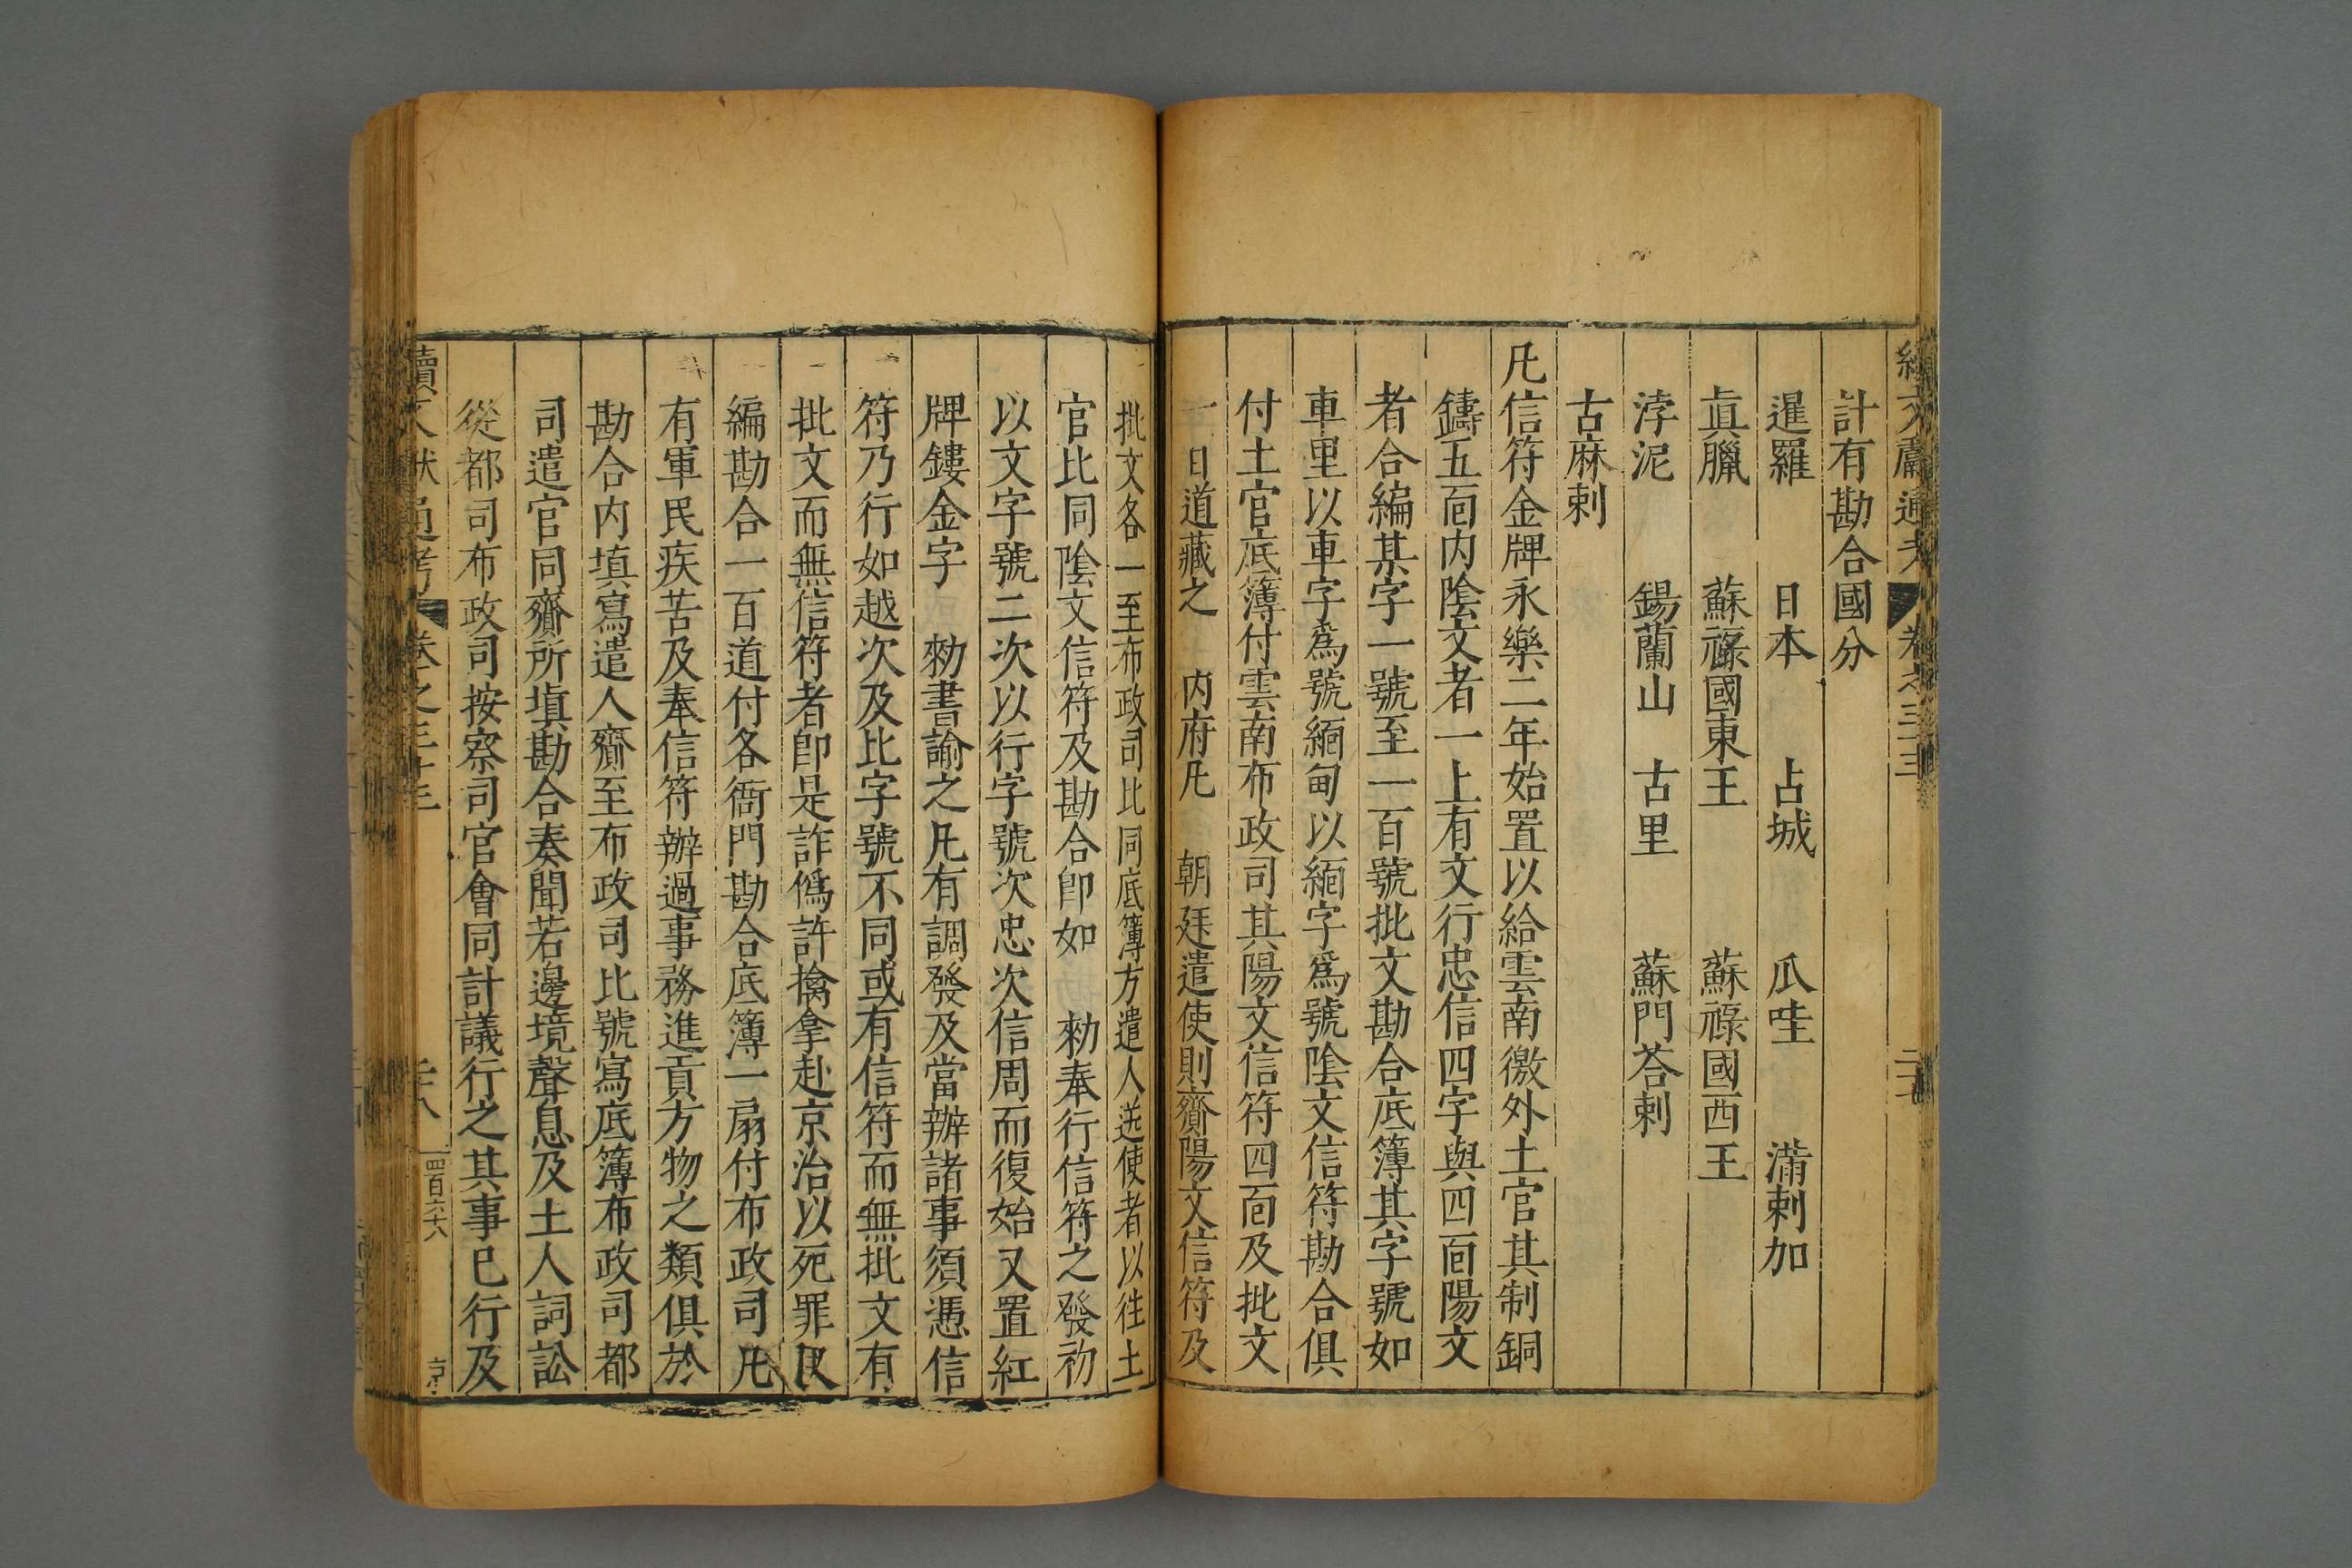 計有勘合國分
暹羅 日本 占城 瓜哇 滿剌加
眞臘 蘇祿國東王 蘇祿國西王
浡泥 錫蘭山 古里 蘇門荅剌
古麻剌
凡信符金牌永樂二年始置以給雲南徼外土官其制銅
鑄五面内陰文者一上有文行忠信四字與四面陽文
者合編某字一號至一百號批文勘合底簿其字號如
車里以車字爲號緬甸以緬字爲號陰文信符勘合俱
付土官底簿付雲南布政司其陽文信符四面及批文
一百道藏之 内府凡 朝廷遣使則齎陽文信符及
批文各一至布政司比同底簿方遣人送使者以往土
官比同陰文信符及勘合卽如 勑奉行信符之發初
以文字號二次以行字號次忠次信周而復始又置紅
牌鏤金字 勑書諭之凡有調發及當辦諸事須憑信
符乃行如越次及比字號不同或有信符而無批文有
批文而無信符者卽是詐僞許擒拿赴京治以死罪又
編勘合一百道付各衙門勘合底簿一扇付布政司凡
有軍民疾苦及奉信符辦過事務進貢方物之類俱於
勘合内填寫遣人齎至布政司比號寫底簿布政司都
司遣官同齎所塡勘合奏聞若邊境聲息及土人詞訟
從都司布政司按察司官會同計議行之其事已行及
續文獻通考 卷之三十三 二十八 四百六十八